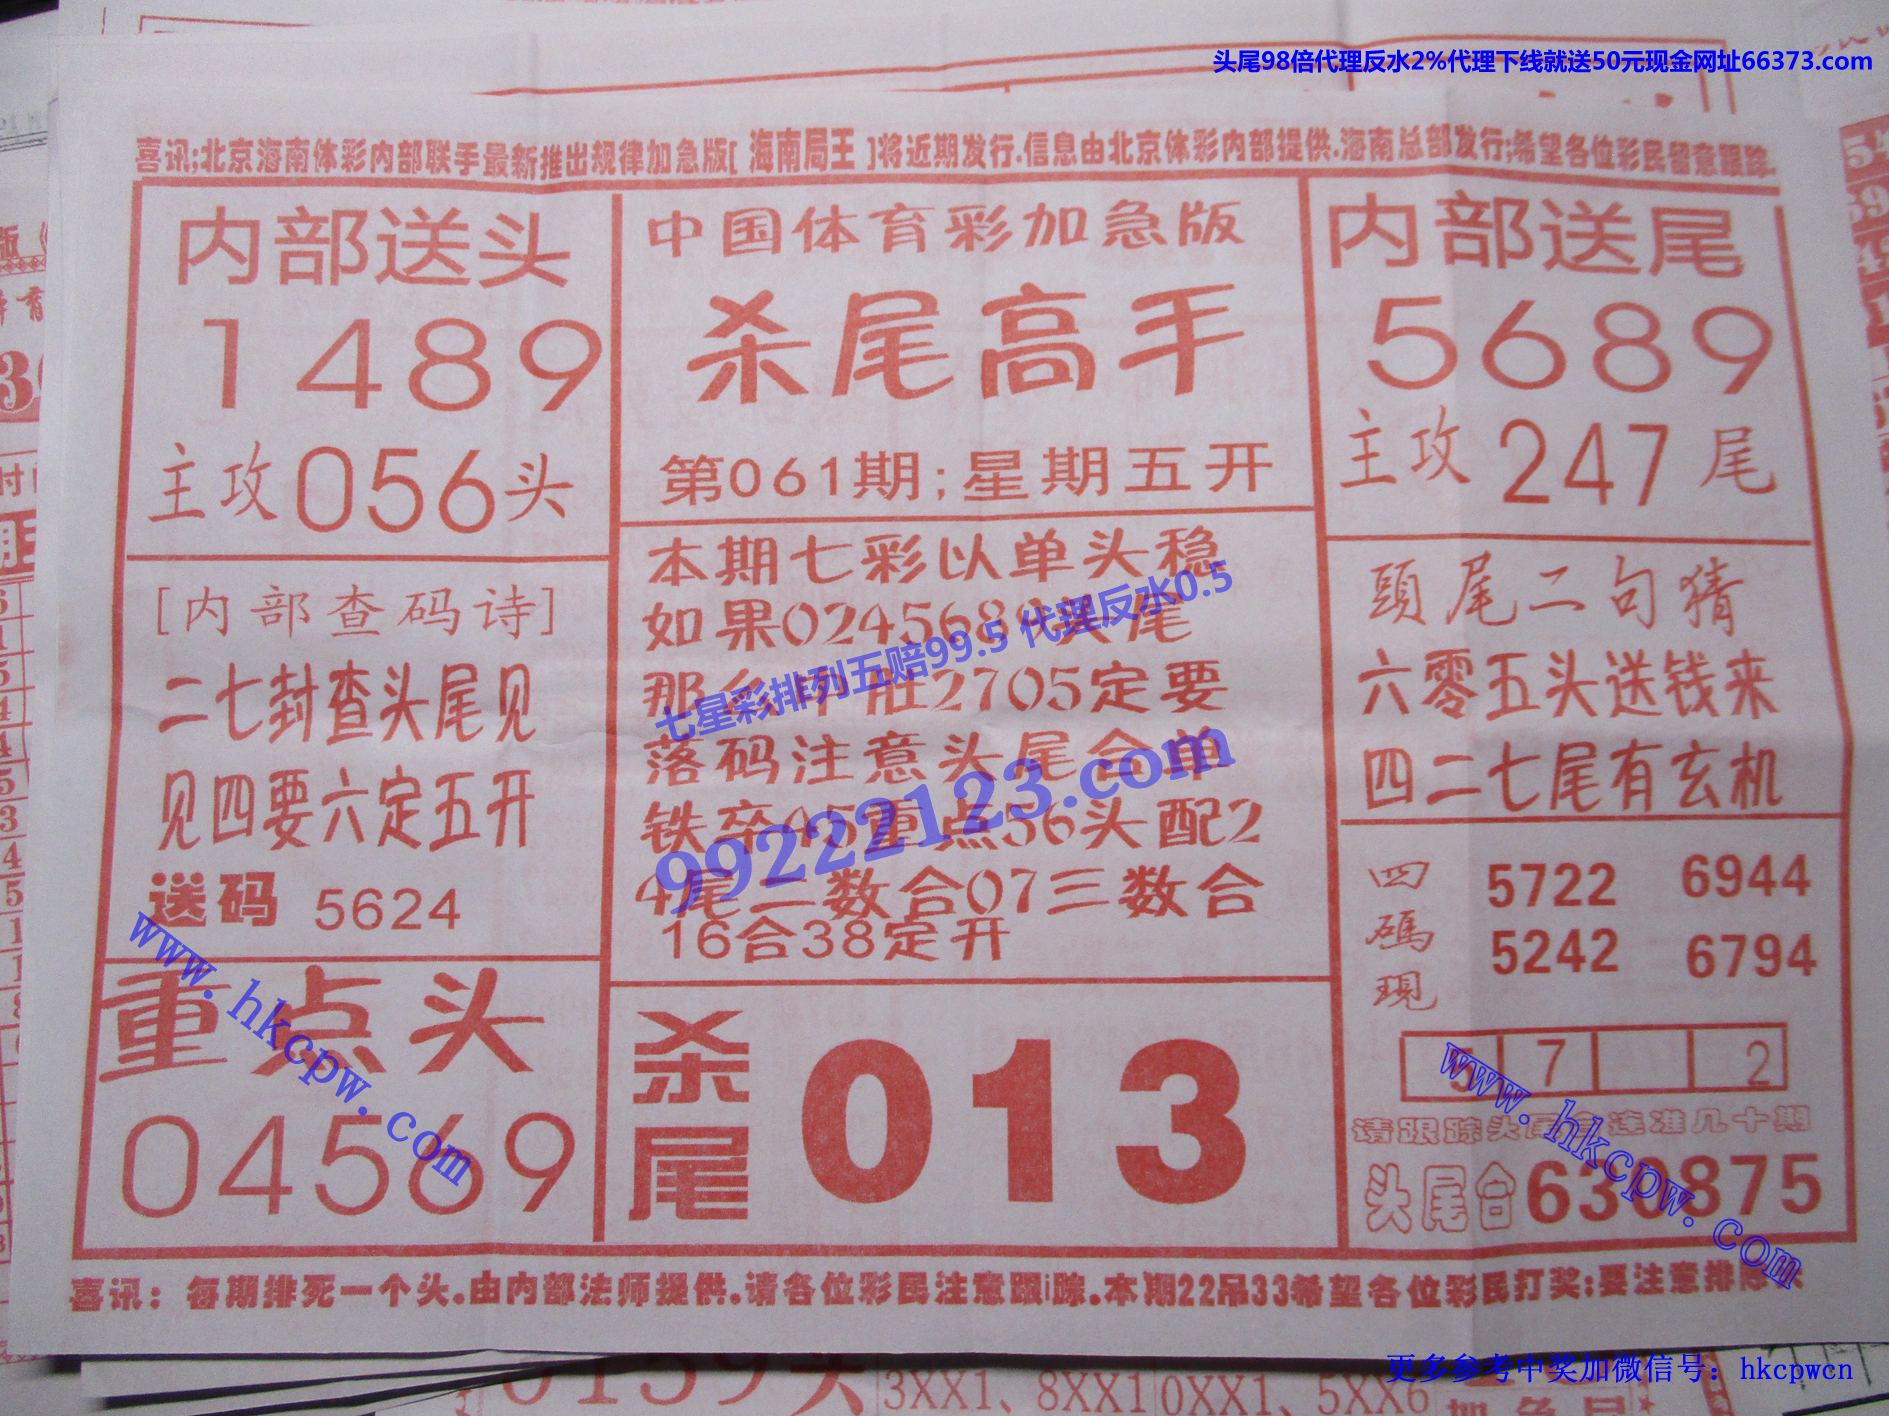 头尾98倍代理反水2%代理下线就送50元现金网址66373.com
喜讯;北京海南体彩内部联手最新推出规律加急版[ 海南局王 ]将近期发行.信息由北京体彩内部提供.海南总部发行;希望各位彩民留意跟踪.
内部送头
1489
主攻056头
[内部查码诗]
二七封查头尾见
见四要六定五开
送码 5624
重点头
04569
中国体育彩加急版
杀尾高手
第061期;星期五开
本期七彩以单头稳
如果0245689头尾
那么 2705定要
落码注意头尾合单
铁卒045重点56头配2
4尾二数合07三数合
16合38定开
杀尾 013
内部送尾
5689
主攻247尾
頭尾二句猜
六零五头送钱来
四二七尾有玄机
四碼現
5722 6944
5242 6794
5 7 2
请跟踪头尾合连准几十期
头尾合630875
喜讯: 每期排死一个头.由内部法师提供.请各位彩民注意跟踪.本期22吊33希望各位彩民打奖;要注意排除
七星彩排列五赔99.5 代理反水0.5
99222123.com
www.hkcpw.com
www.hkcpw.com
0139头
3XX1、8XX1
0XX1、5XX6
更多参考中奖加微信号：hkcpwcn